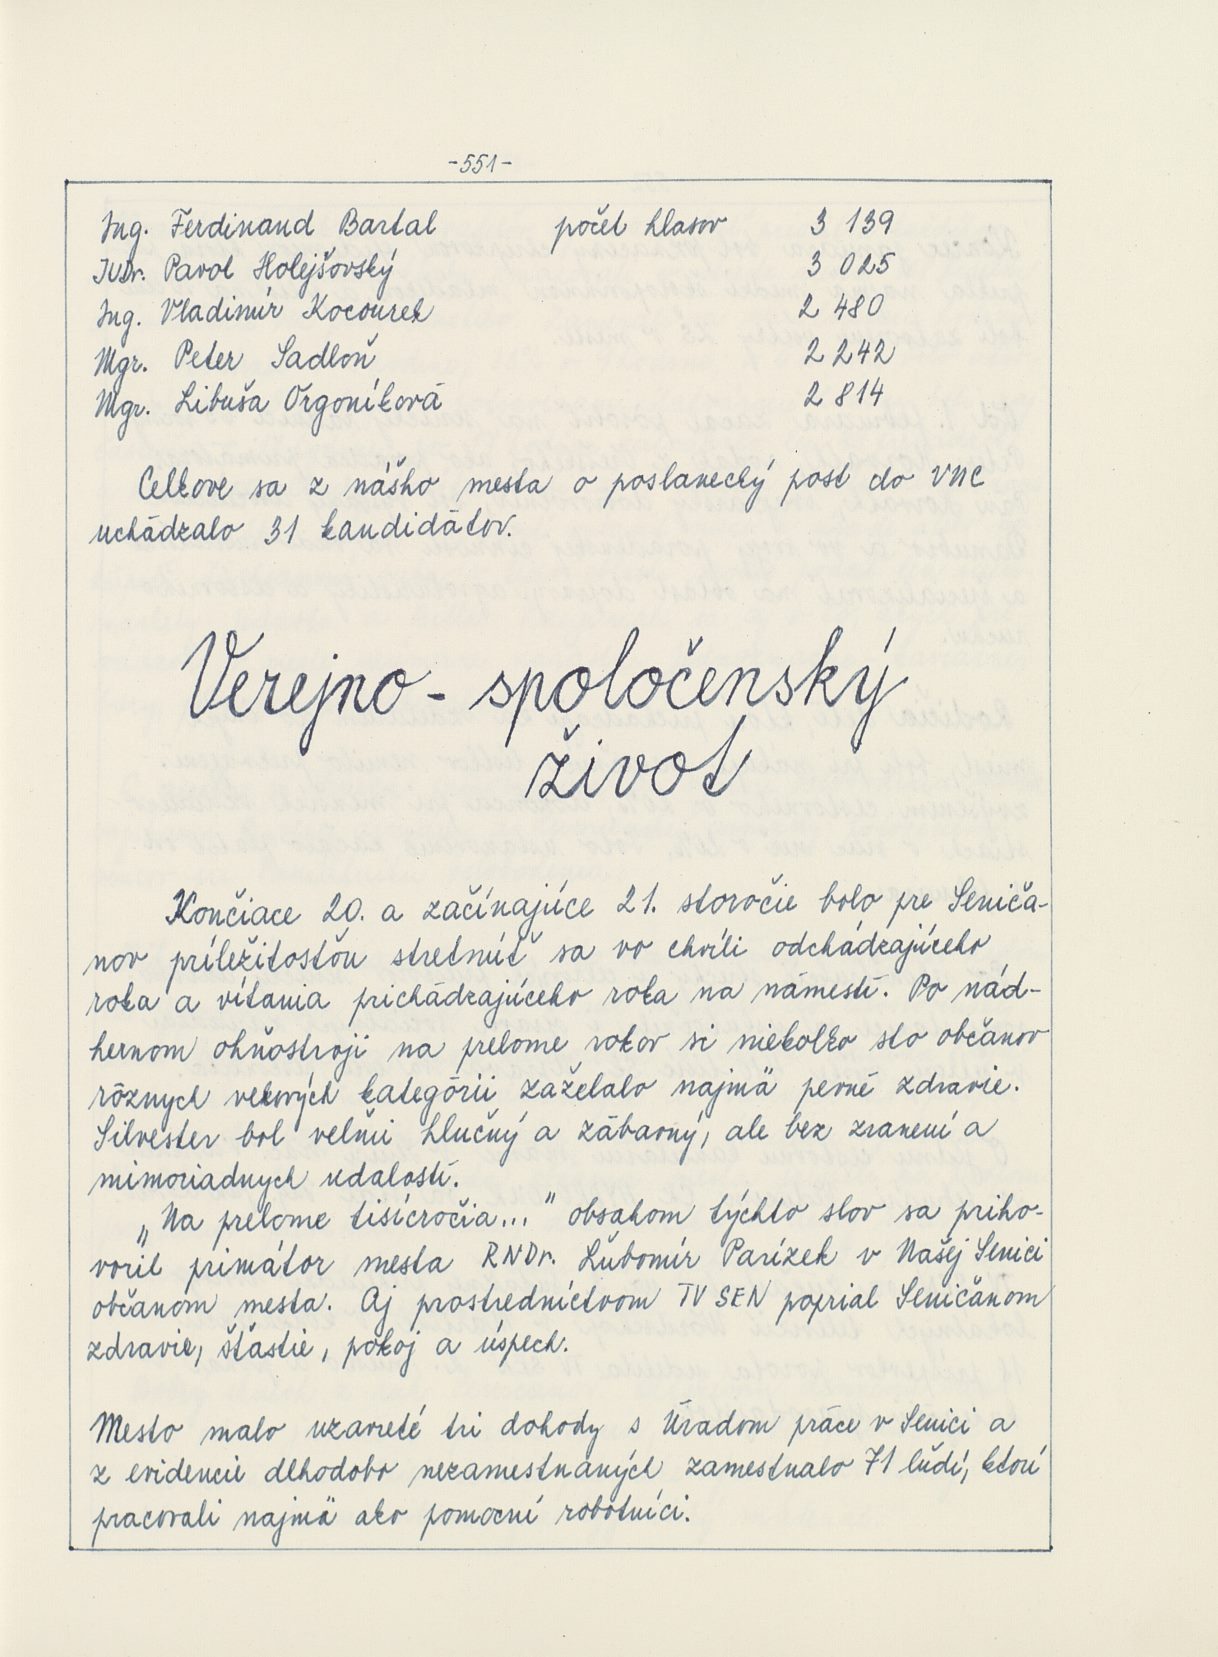 -551-
Ing. Ferdinand Bartal počet hlasov 3 139
JUDr. Pavol Holejšovský 3 025
Ing. Vladimír Kocourek 2 480
Mgr. Peter Sadloň 2 242
Mgr. Libuša Orgoníková 2 814
Celkove sa z nášho mesta o poslanecký post do VÚC
uchádzalo 31 kandidátov.
Verejno - spoločenský
život
Končiace 20. a začínajúce 21. storočie bolo pre Seniča-
nov príležitosťou stretnúť sa vo chvíli odchádzajúceho
roka a vítania prichádzajúceho roka na námestí. Po nád-
hernom ohňostroji na prelome rokov si niekoľko sto občanov
rôznych vekových kategórii zaželalo najmä pevné zdravie.
Silvester bol veľmi hlučný a zábavný, ale bez zranení a
mimoriadnych udalostí.
„Na prelome tisícročia..." obsahom týchto slov sa priho-
voril primátor mesta RNDr. Ľubomír Parízek v Našej Senici
občanom mesta. Aj prostredníctvom TV SEN poprial Seničanom
zdravie, šťastie, pokoj a úspech.
Mesto malo uzavreté tri dohody s Úradom práce v Senici a
z evidencie dlhodobo nezamestnaných zamestnalo 71 ľudí, ktorí
pracovali najmä ako pomocní robotníci.